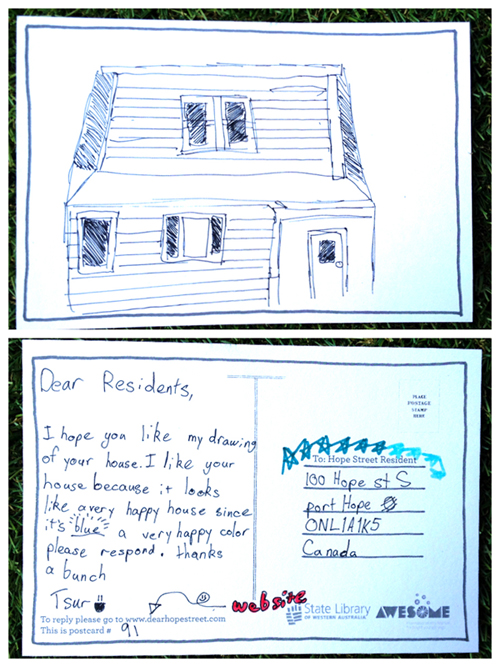 Dear Residents,
I hope you like my drawing
of your house. I like your
house because it looks
like a very happy house since
it's blue a very happy color
please respond. thanks
a bunch
Tsur
To reply please go to www.dearhopestreet.com
This is postcard # 91
PLACE
POSTAGE
STAMP
HERE
To: Hope Street Resident
100 Hope st S
port Hope
ONL1A1K5
Canada
website
State Library
OF WESTERN AUSTRALIA
AWESOME